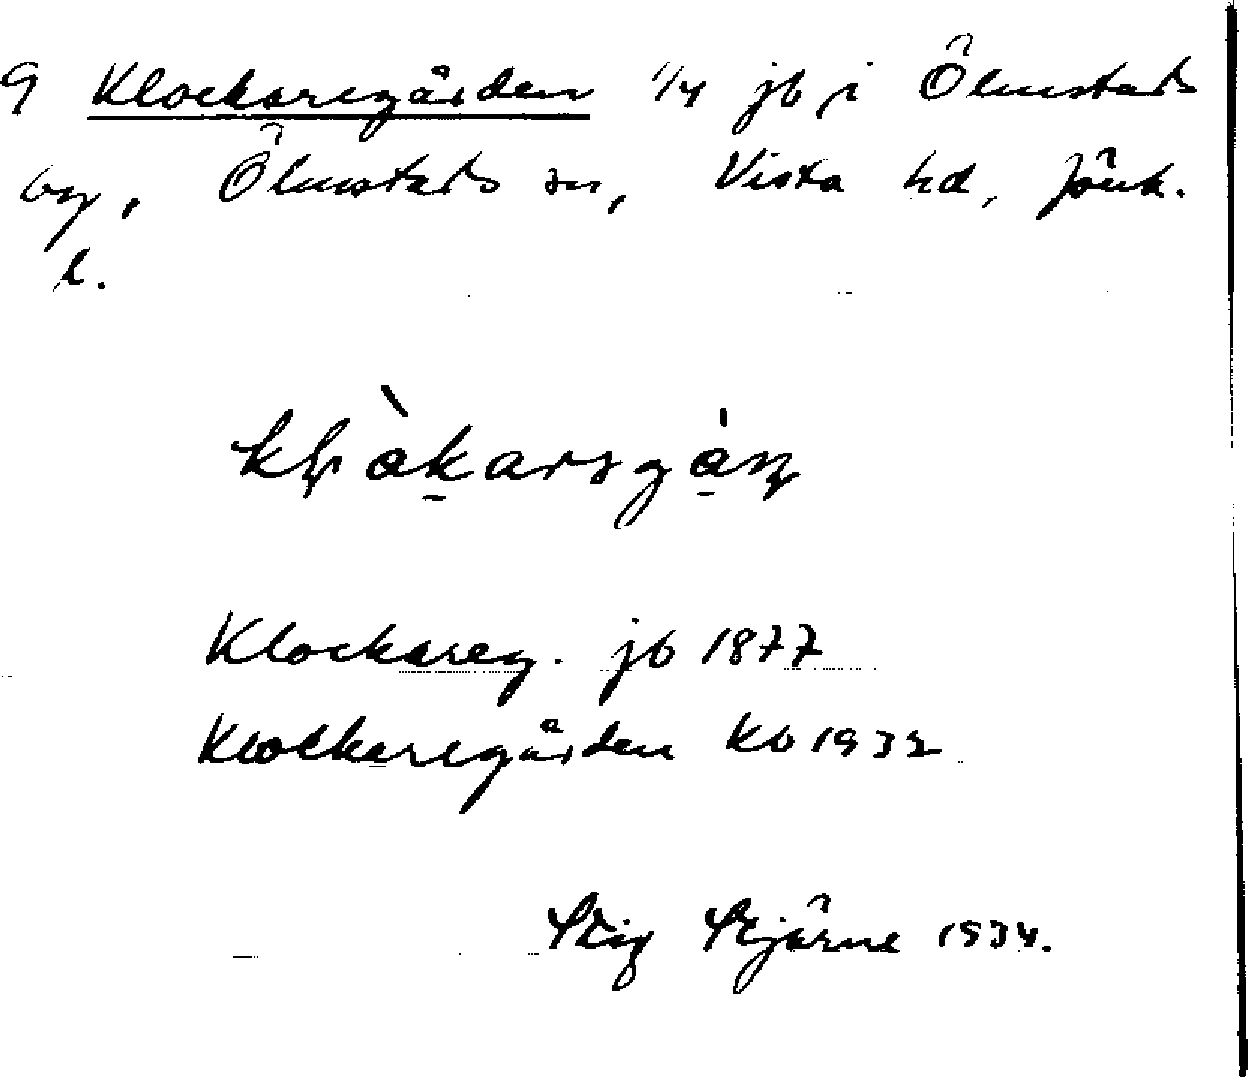 9 Klockaregården 1/4 jb i Ölmstads
by, Ölmstads sn, Vista hd, Jönk.
l.
Klockareg. jb 1877
Klockaregården kb 1932
Stig Stjärne 1934.